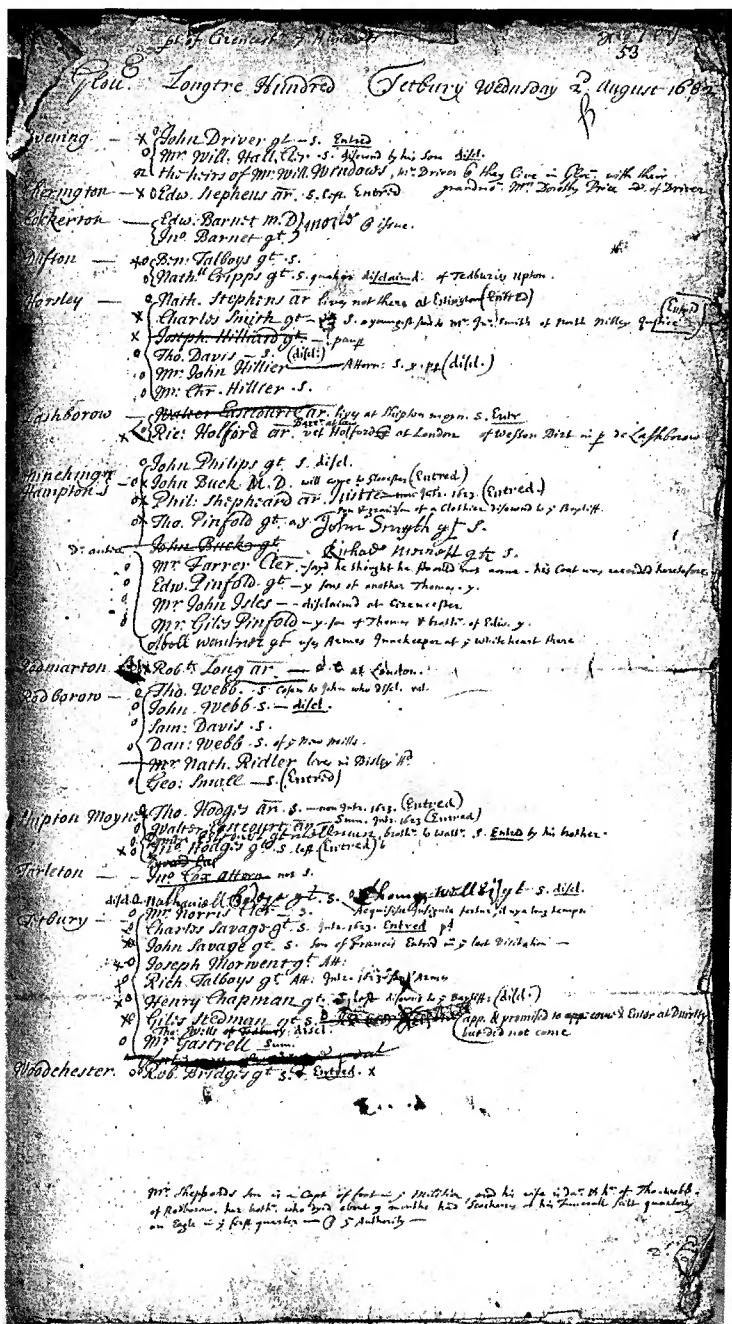 pt of Cirencestr & Hundred
53
Glouc. Longtre Hundred Tetbury Wednsday 2d August 1682
Avening — x o John Driver gt — s. Entred
o Mr Will. Hall, Cler. s. disownd by his Son discl.
n the heirs of Mr Will. Windows, Mr Driver they live in Glouc. with their
grandmo. Mrs Dorothy Price of Driver
Cherington — x o Edw. Stephens ar. s. left. Entred
Edw. Barnet M.D } mortus issue.
Jno. Barnet gt }
Ben: Talboys gt s.
Nathll Cripps gt s. quaker disclaimd. of Tedburies Upton.
Horsley — o Nath. Stephens ar lives not there at (Entred)
x Charles Smith gt — s. a youngest son to Mr Jn. Smith of North Nibley Justice (Entred)
x Joseph Hilliard gt — paup
o Tho. Davis — s. (discl:)
o Mr. John Hillier — Attorn: s. x. (discl.)
o Mr. Chr. Hillier. s.
Lashborow — Walter Eastcourt ar. livs at Shipton moyn. s. Entr
x Ric: Holford ar. vel Holford at London of Weston Birt in p de Lashborow
Minchingn
Hampton
o John Philips gt s. discl.
o x John Buck M.D. will come to Glocester (Entred)
o x Phil: Shepheard ar Justice Intr. 1623. (Entred.)
son & grandson of a Clothier disownd to y Bayliff.
o x Tho. Pinfold gt a.y John Smyth gt s.
John Buck gt — Richad gt s.
o Mr Farrer Cler. — sayd he thought he should not come — his Coat was recorded heretofore
o Edw. Pinfold gt — y sons of another Thomas. y.
o Mr John Isles — disclaimd at Cirencester
o Mr. Giles Pinfold — y son of Thomas & brothr. of Edw. y.
gt uses Armes Innekeeper at y white heart there
Rodmarton x Robt. Long ar. — at London.
Rodborow — o Tho. Webb. s. Cosen to John who discl.
o John Webb s. — discl.
o Sam: Davis. s.
o Dan: Webb. s. of y New Mills.
Mr Nath. Ridler lives in Bisley Hd
o Geo: Small — s. (Entred)
Shipton Moyne o Tho. Hodges ar. s. — non Intr. 1623. (Entred)
o Walter Estcourt ar. — Summ. Intr. 1623 (Entred)
gt brothr. to Waltr. s. Entred by his brother.
x o Hodges gt s. left (Entred)
Tarleton — Jno Cox Attorn not s.
discl. o Nathaniell gt s. o Thomas gt — s. discl.
Tetbury — o Mr. Norris Cler — s. Acquisitis Insignia
Charles Savage gt. s. Intr. 1623. Entred
John Savage gt. s. Son of Francis Entred in y last Visitation —
x o Joseph Morwent gt Att:
Rich Talboys gt Att: Intr. 1623 Armes
x o Henry Chapman gt. s. left disownd to y Bayliff: (discl.)
Giles Stedman gt s. app. & promised to app: come & Enter at Dursley
but did not come
Tho. Wills of Tedbury: discl.
o Mr Gastrell Sum.
Woodchester. o Rob. Bridges gt s. Entred. x
Mr. Shepperds son is a Capt of foot in y Militia, and his wife is da. & hr. of Tho. Webb
of Rodborow. her brothr. who dyed about 9 months had Scocheons at his Funerall full quarterly
an Eagle in y first quarter — Authority —